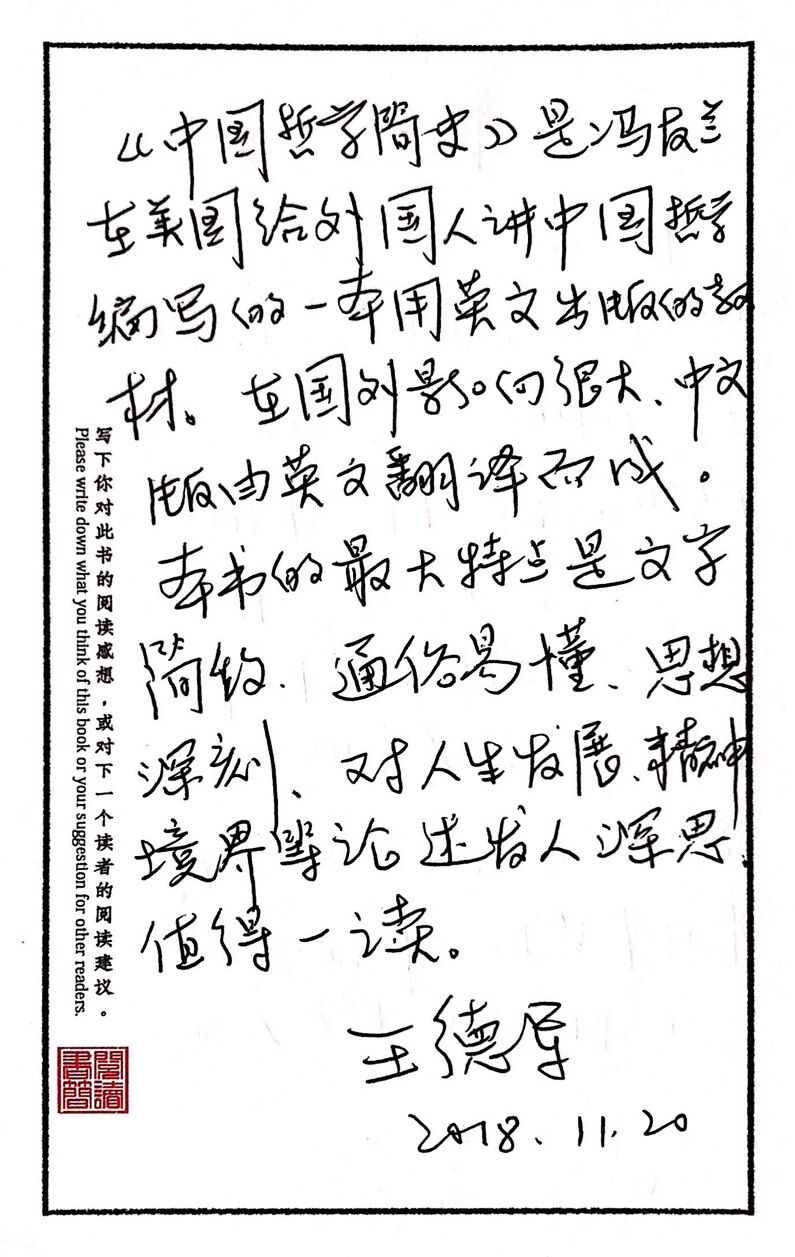 《中国哲学简史》是冯友兰
在美国给外国人讲中国哲学
编写的一本用英文出版的教
材。在国外影响很大、中文
版由英文翻译而成。
本书的最大特点是文字
简约、通俗易懂、思想
深刻、对人生发展、精神
境界等论述发人深思、
值得一读。
王德军
2018.11.20
写下你对此书的阅读感想，或对下一个读者的阅读建议。
Please write down what you think of this book or your suggestion for other readers.
閱讀
書簡